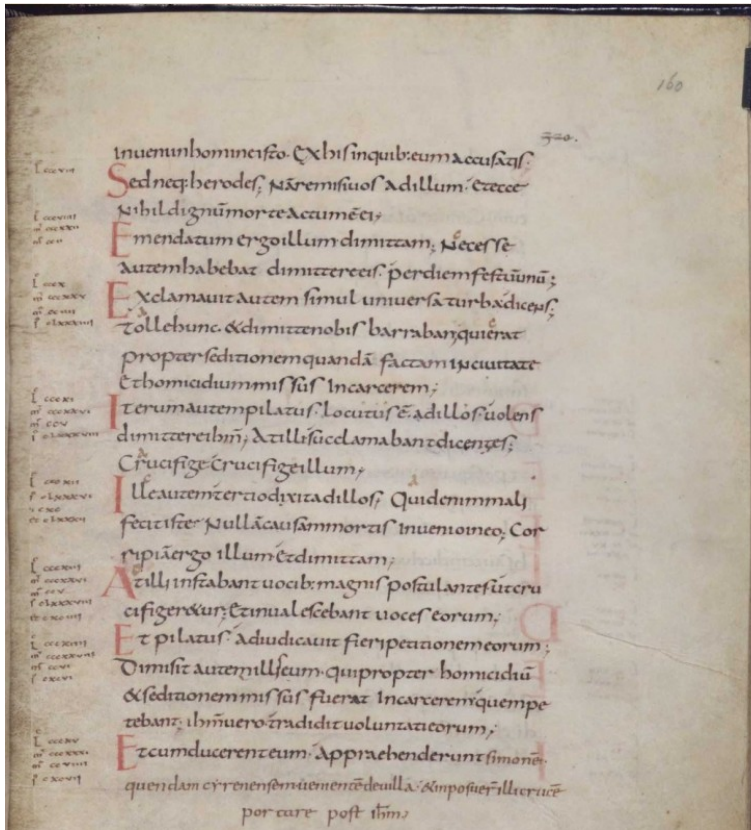 160
320.
inveni in homine isto. Ex his in quib: eum accusatis;
Sed neq; herodes; Nā remisi vos ad illum. Et ecce
Nihil dignū morte actum ē ei;
Emendatum ergo illum dimittam; Necesse
autem habebat dimittere eis. per diem festū unū;
Exclamavit autem simul universa turba dicens;
Tolle hunc. & dimitte nobis barraban; qui erat
propter seditionem quandā factam in civitate
Et homicidium missus in carcerem;
Iterum autem pilatus. locutus ē ad illos. volens
dimittere ihm̄; At illi succlamabant dicentes;
Crucifige. Crucifige illum;
Ille autem tertio dixit ad illos; Quid enim mali
fecit iste; Nullā causam mortis invenio in eo; Cor
ripiā ergo illum Et dimittam;
At illi instabant vocib: magnis postulantes ut cru
cifiger&ur; Et invalescebant voces eorum;
Et pilatus. adiudicavit fieri petitionem eorum;
Dimisit autem illis eum. qui propter homicidiū
& seditionem missus fuerat In carcerem; quem pe
tebant; ihm̄ vero. tradidit voluntati eorum;
Et cum ducerent eum. Appraehenderunt simonē.
quendam cyrenensem venientē de villa. & imposuer̄ illi crucē
portare post ihm̄;